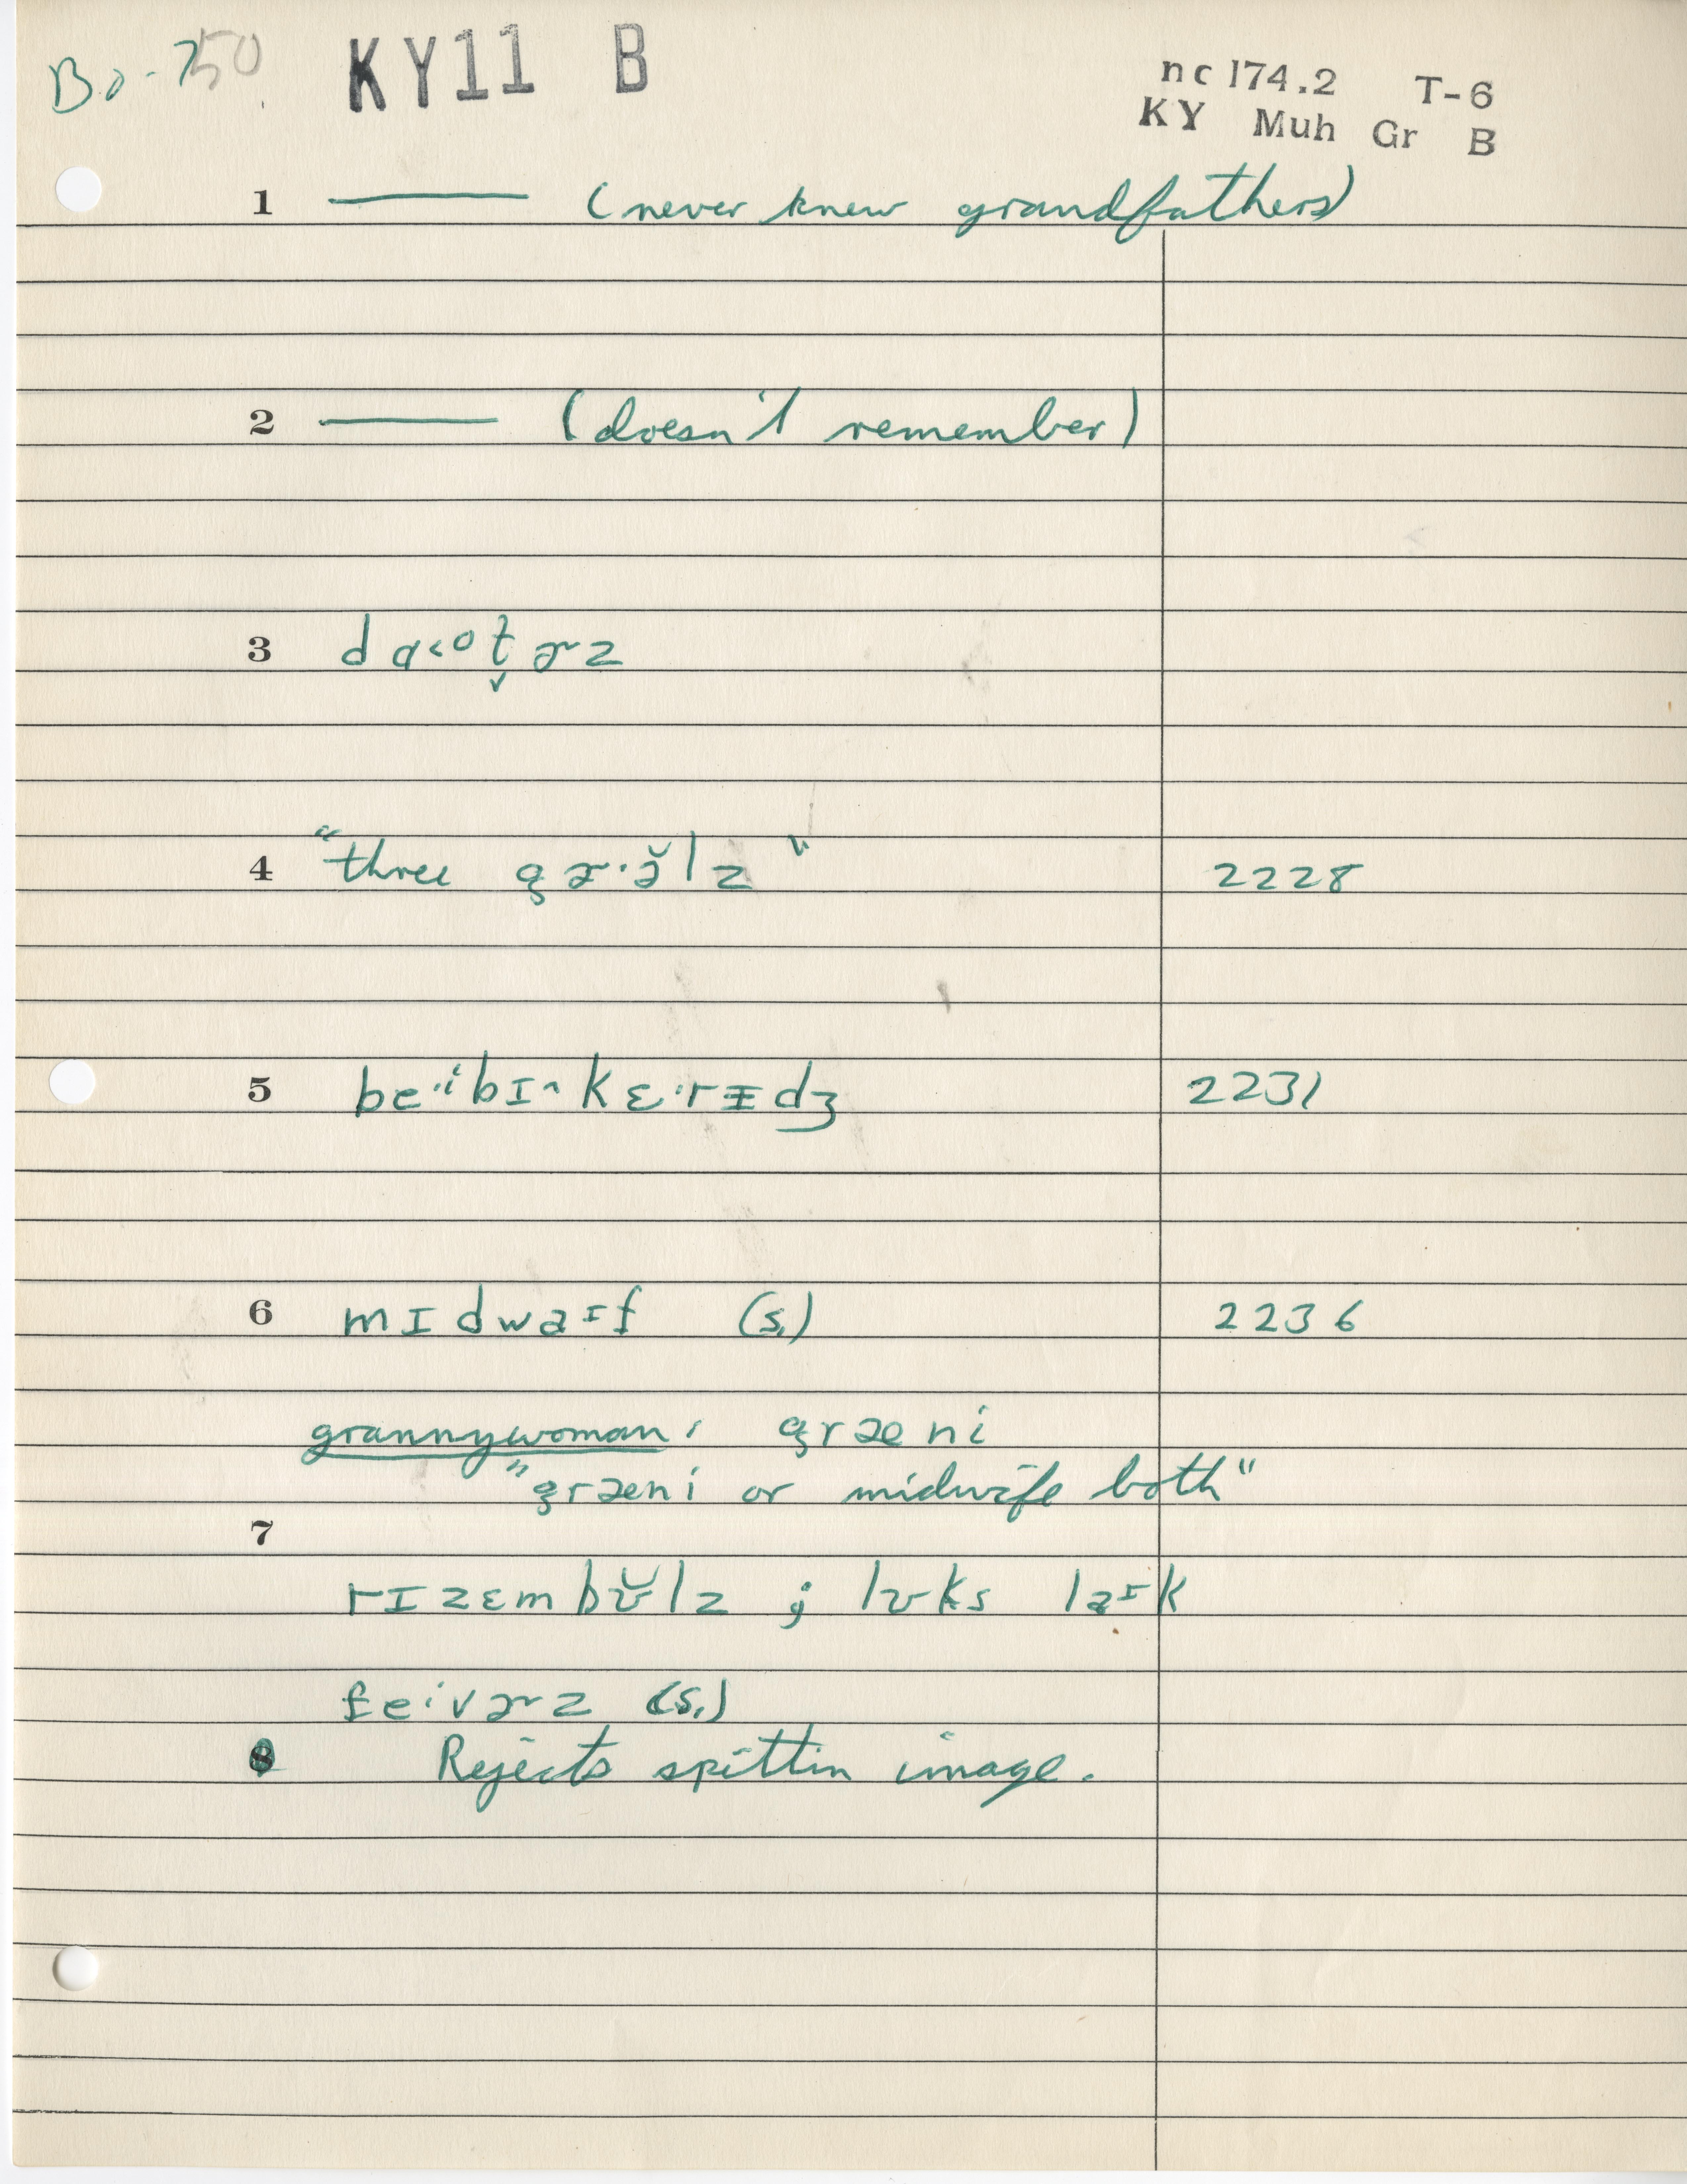 Bo-750 KY11 B
nc 174.2 T-6
KY Muh Gr B
1 —— (never knew grandfathers)
2 —— (doesn't remember)
3 dɑ˂ᵒt̬ɚz
4 "three gɚ·ə̆lz" 2228
5 be·ⁱbɪ^kɛ·rᵻdʒ 2231
6 mɪdwaᶦf (s.) 2236
grannywoman: græni
"græni or midwife both"
7
rɪzɛmbʊ̆lz ; lʊks laᶦk
feⁱvɚz (s.)
8 Rejects spittin image.